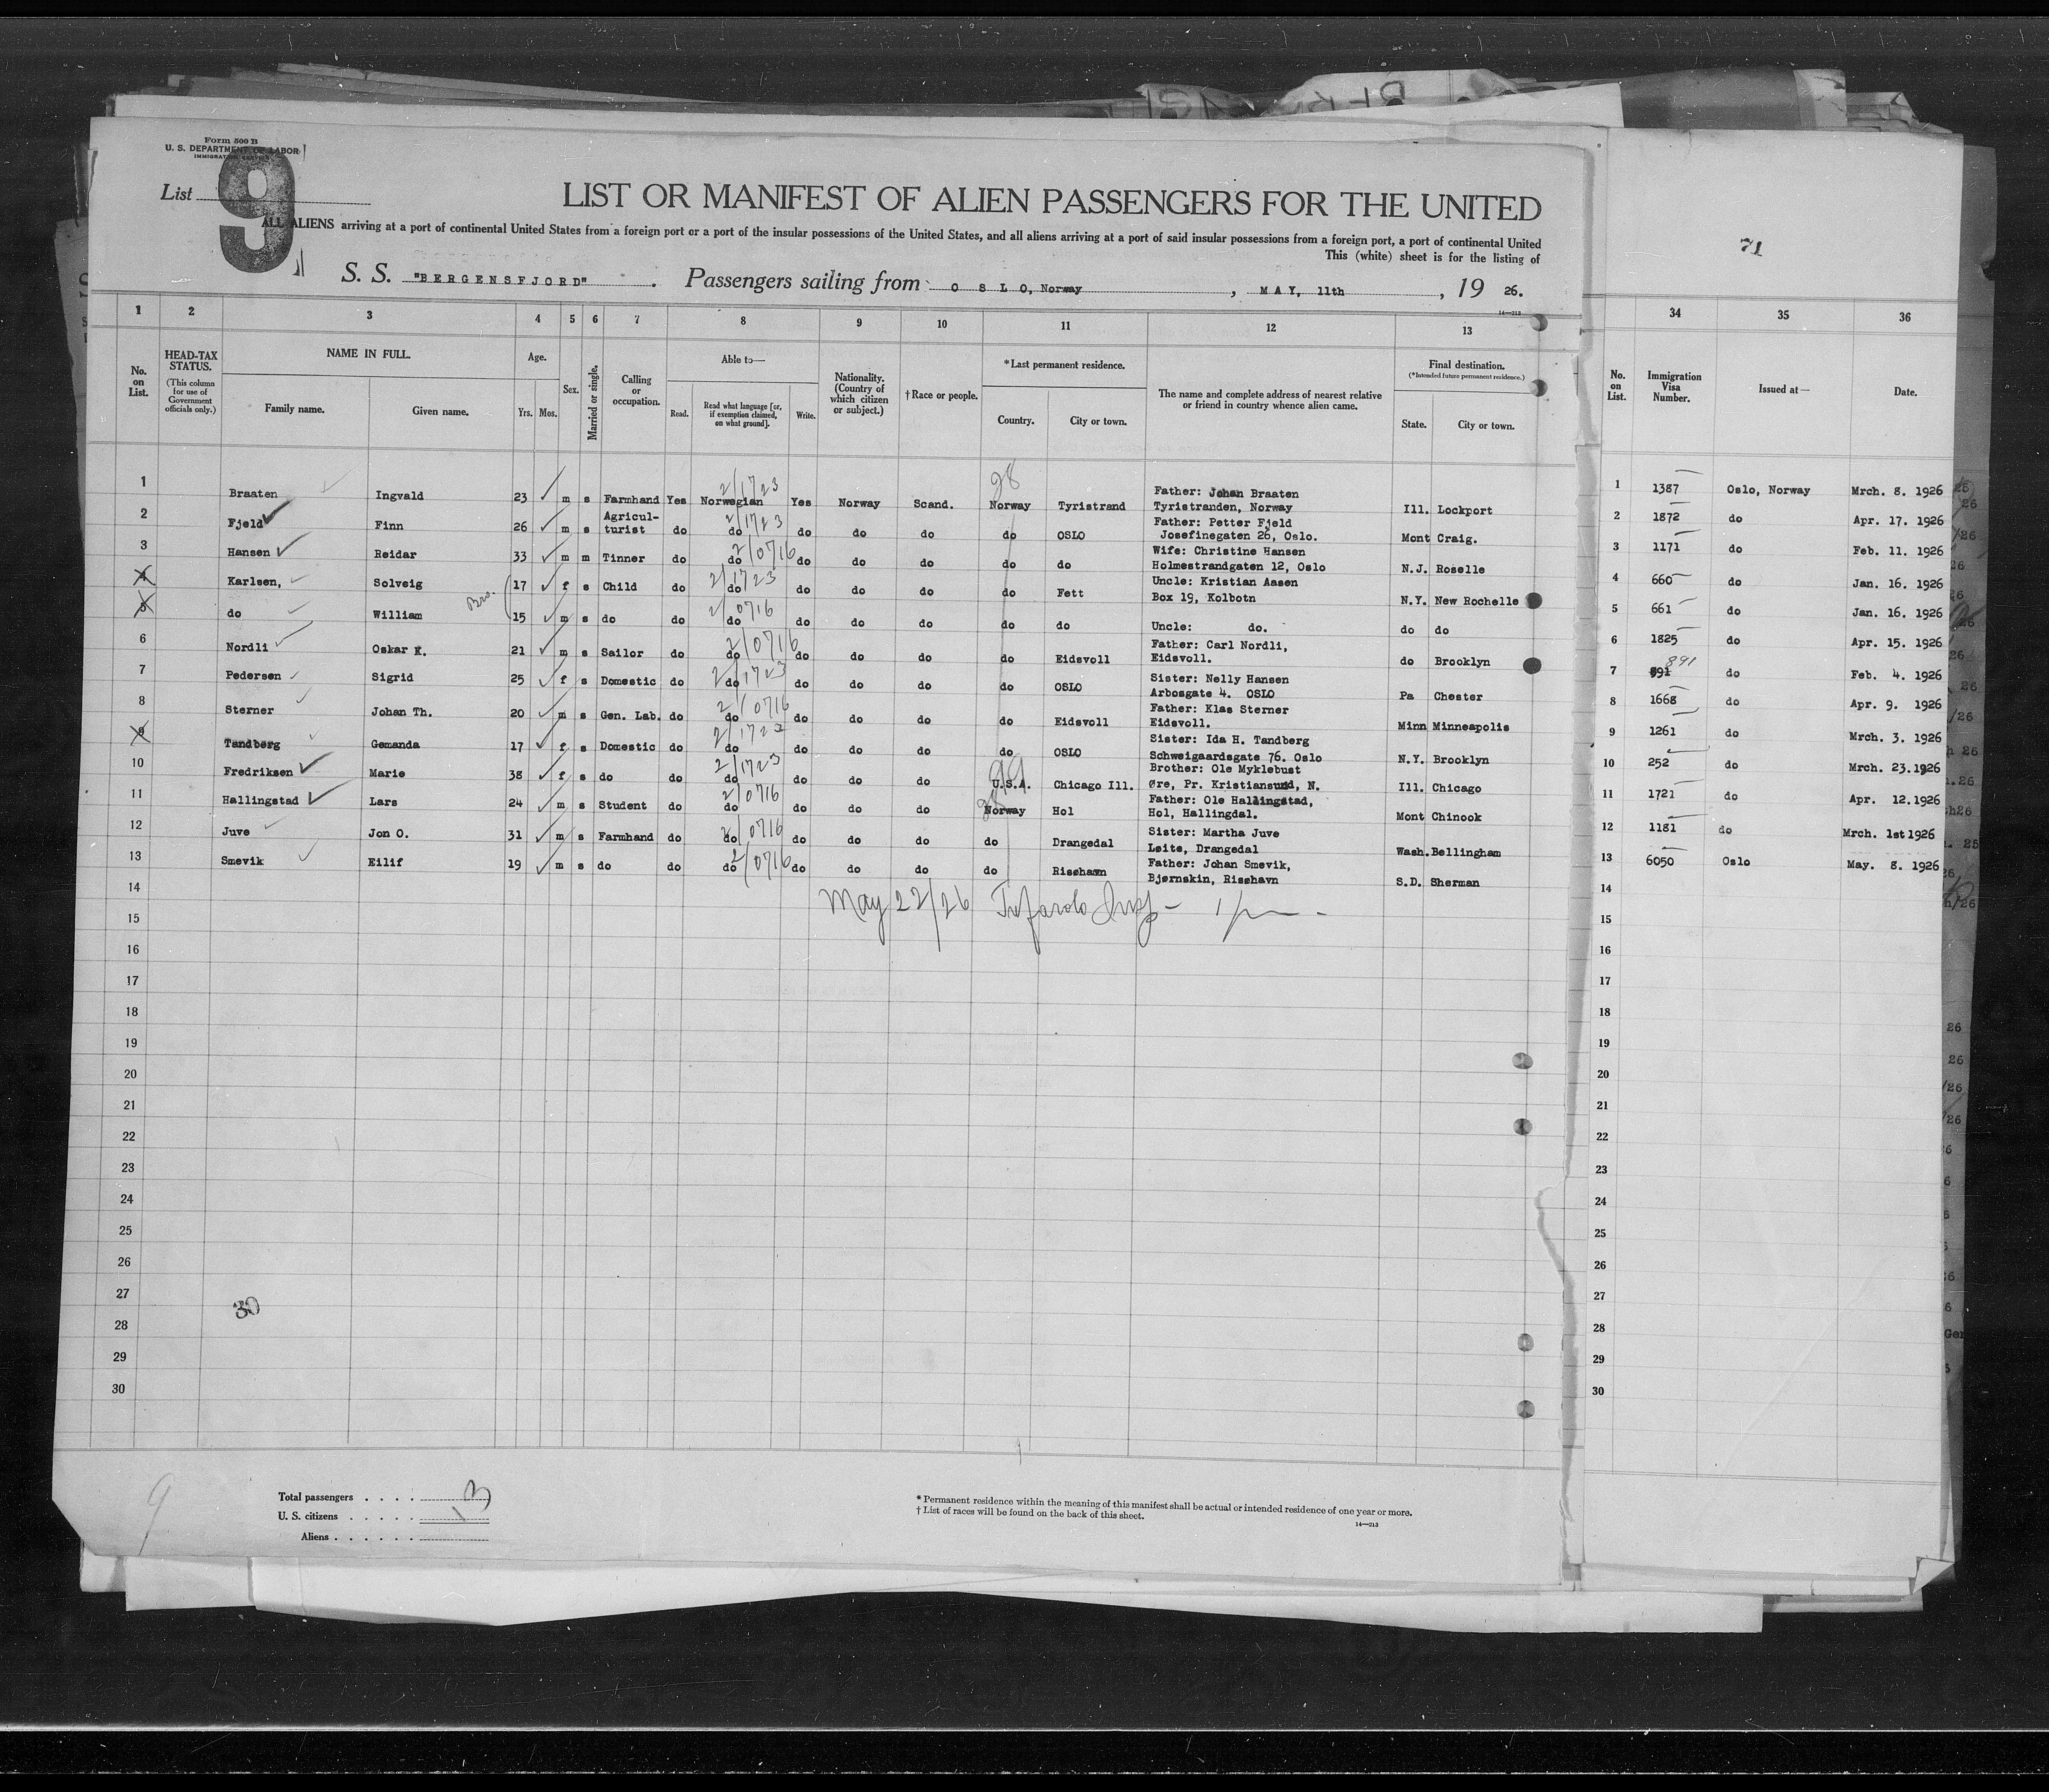 Form 500 B
U. S. DEPARTMENT OF LABOR
IMMIGRATION SERVICE
List 9
LIST OR MANIFEST OF ALIEN PASSENGERS FOR THE UNITED
ALL ALIENS arriving at a port of continental United States from a foreign port or a port of the insular possessions of the United States, and all aliens arriving at a port of said insular possessions from a foreign port, a port of continental United
This (white) sheet is for the listing of
71
S. S. "BERGENSFJORD" . Passengers sailing from O S L O, Norway , MAY, 11th , 19 26.
14—213
1 2 3 4 5 6 7 8 9 10 11 12 13 34 35 36
No. on List. HEAD-TAX STATUS. (This column for use of Government officials only.) NAME IN FULL. Family name. Given name. Age. Yrs. Mos. Sex. Married or single. Calling or occupation. Able to— Read. Read what language [or, if exemption claimed, on what ground]. Write. Nationality. (Country of which citizen or subject.) †Race or people. *Last permanent residence. Country. City or town. The name and complete address of nearest relative or friend in country whence alien came. Final destination. (*Intended future permanent residence.) State. City or town. No. on List. Immigration Visa Number. Issued at— Date.
1 Braaten Ingvald 23 m s Farmhand Yes Norwegian 2/1723 Yes Norway Scand. 28 Norway Tyristrand Father: Johan Braaten Tyristranden, Norway Ill. Lockport 1 1387 Oslo, Norway Mrch. 8. 1926
2 Fjeld Finn 26 m s Agricul-turist do do 2/1723 do do do do OSLO Father: Petter Fjeld Josefinegaten 26, Oslo. Mont Craig. 2 1872 do Apr. 17. 1926
3 Hansen Reidar 33 m m Tinner do do 2/0716 do do do do do Wife: Christine Hansen Holmestrandgaten 12, Oslo N.J. Roselle 3 1171 do Feb. 11. 1926
4 Karlsen, Solveig 17 f s Child do do 2/1723 do do do do Fett Uncle: Kristian Aasen Box 19, Kolbotn N.Y. New Rochelle 4 660 do Jan. 16. 1926
5 do William Bro. 15 m s do do do 2/0716 do do do do do Uncle: do. do do 5 661 do Jan. 16. 1926
6 Nordli Oskar K. 21 m s Sailor do do 2/0716 do do do do Eidsvoll Father: Carl Nordli, Eidsvoll. do Brooklyn 6 1825 do Apr. 15. 1926
7 Pedersen Sigrid 25 f s Domestic do do 2/1723 do do do do OSLO Sister: Nelly Hansen Arbosgate 4. OSLO Pa Chester 7 891 do Feb. 4. 1926
8 Sterner Johan Th. 20 m s Gen. Lab. do do 2/0716 do do do do Eidsvoll Father: Klas Sterner Eidsvoll. Minn Minneapolis 8 1668 do Apr. 9. 1926
9 Tandberg Gemanda 17 f s Domestic do do 2/1723 do do do do OSLO Sister: Ida H. Tandberg Schweigaardsgate 76. Oslo N.Y. Brooklyn 9 1261 do Mrch. 3. 1926
10 Fredriksen Marie 38 f s do do do 2/1723 do do do 99 U.S.A. Chicago Ill. Brother: Ole Myklebust Øre, Pr. Kristiansund, N. Ill. Chicago 10 252 do Mrch. 23.1926
11 Hallingstad Lars 24 m s Student do do 2/0716 do do do 28 Norway Hol Father: Ole Hallingstad, Hol, Hallingdal. Mont Chinook 11 1721 do Apr. 12.1926
12 Juve Jon O. 31 m s Farmhand do do 2/0716 do do do do Drangedal Sister: Martha Juve Løite, Drangedal Wash. Bellingham 12 1181 do Mrch. 1st 1926
13 Smevik Eilif 19 m s do do do 2/0716 do do do do Risøhavn Father: Johan Smevik, Bjørnskin, Risøhavn S.D. Sherman 13 6050 Oslo May. 8. 1926
14 14
May 22/26
15 15
16 16
17 17
18 18
19 19
20 20
21 21
22 22
23 23
24 24
25 25
26 26
27 27
30
28 28
29 29
30 30
9
Total passengers . . . . 13
U. S. citizens . . . . .
Aliens . . . . . .
* Permanent residence within the meaning of this manifest shall be actual or intended residence of one year or more.
† List of races will be found on the back of this sheet.
14—213